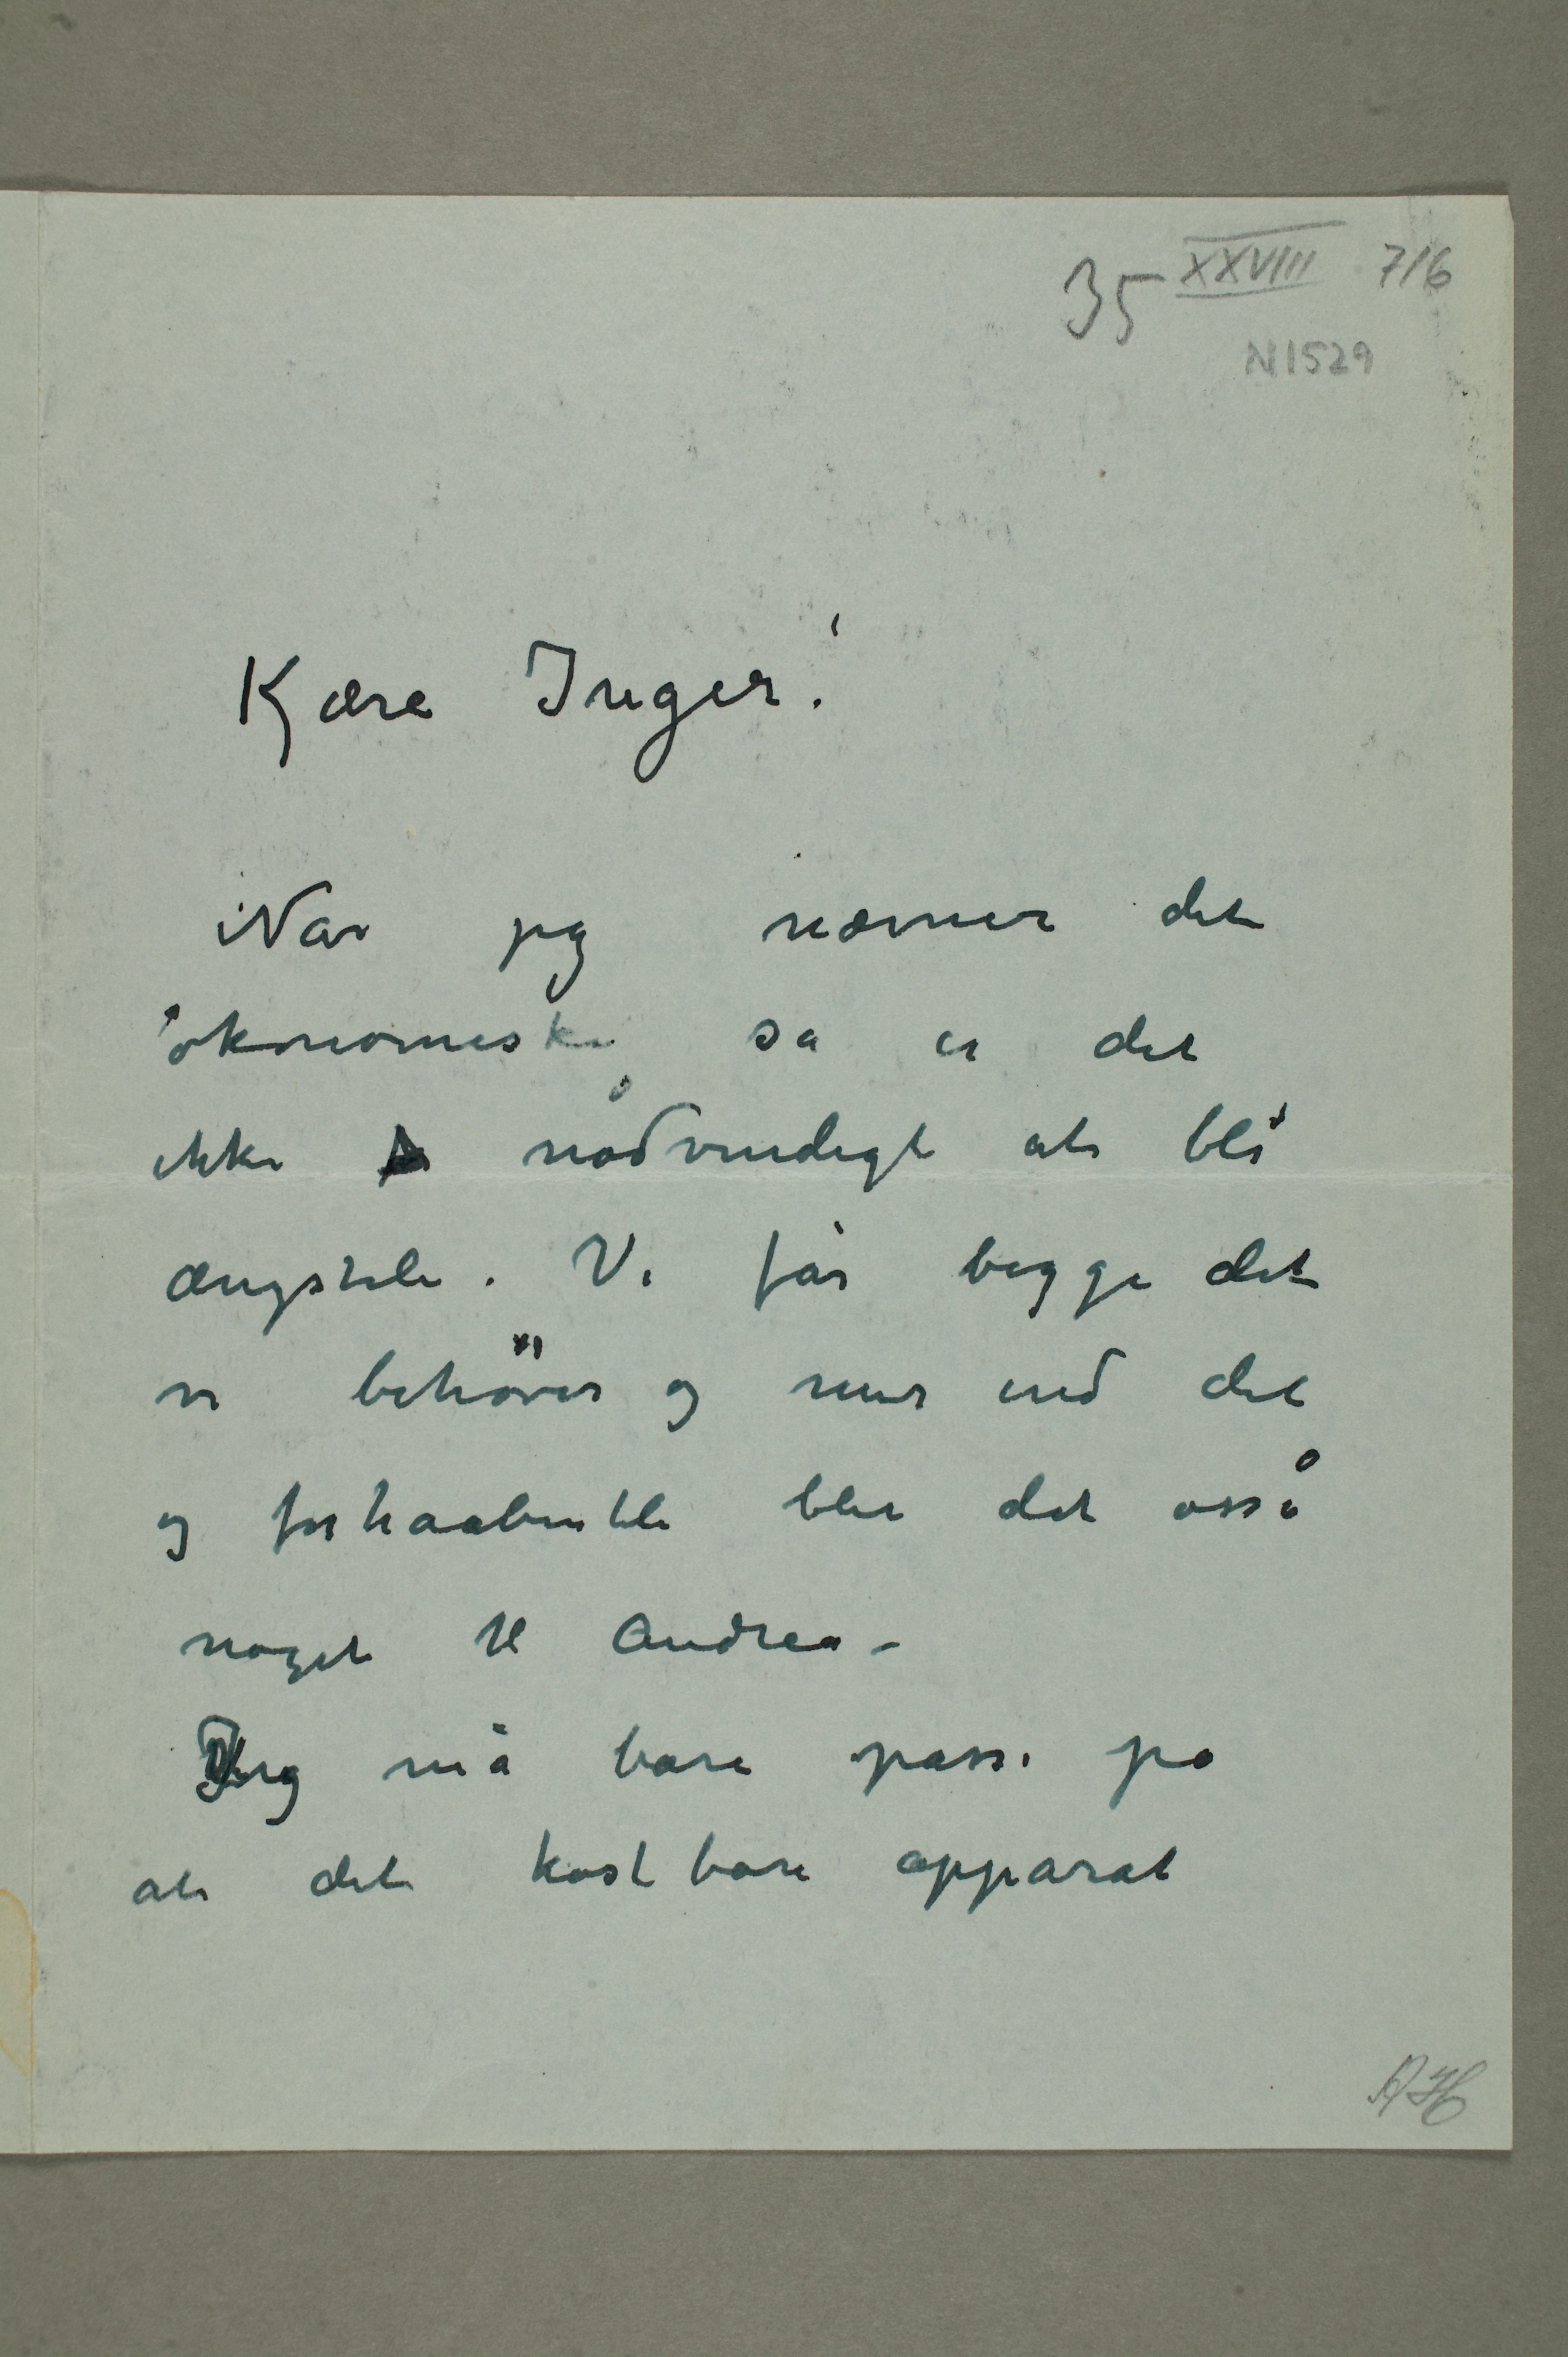 35 XXVIII 716
N1529
Kjære Inger!
Når jeg nævner det
økonomiske så er det
ikke nødvendigt at bli
ængsteli. Vi får begge det
vi behøver og mer end det
og forhaabentli blir det osså
noget til Andrea –
Jeg må bare passe på
at det kostbare apparat
AH